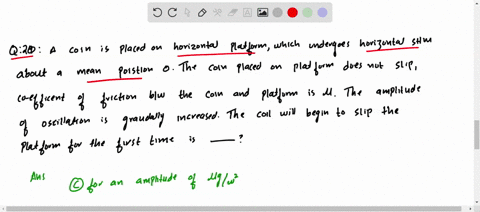 Q:20: A coin is placed on horizontal platform, which undergoes horizontal SHM
about a mean poistion O. The coin placed on platform does not slip,
co-efficent of friction b/w the coin and platform is μ. The amplitude
of oscillation is graudally increased. The coil will begin to slip the
platform for the first time is ___ ?
Ans
(C) for an amplitude of μg/ω²